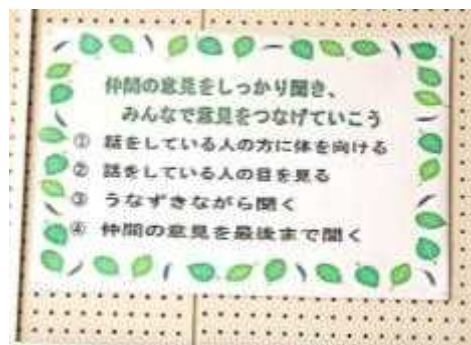 仲間の意見をしっかり聞き、
みんなで意見をつなげていこう
① 話をしている人の方に体を向ける
② 話をしている人の目を見る
③ うなずきながら聞く
④ 仲間の意見を最後まで聞く